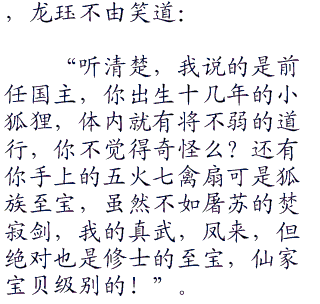 ，龙珏不由笑道：
“听清楚，我说的是前
任国主，你出生十几年的小
狐狸，体内就有将不弱的道
行，你不觉得奇怪么？还有
你手上的五火七禽扇可是狐
族至宝，虽然不如屠苏的焚
寂剑，我的真武，凤来，但
绝对也是修士的至宝，仙家
宝贝级别的！”。